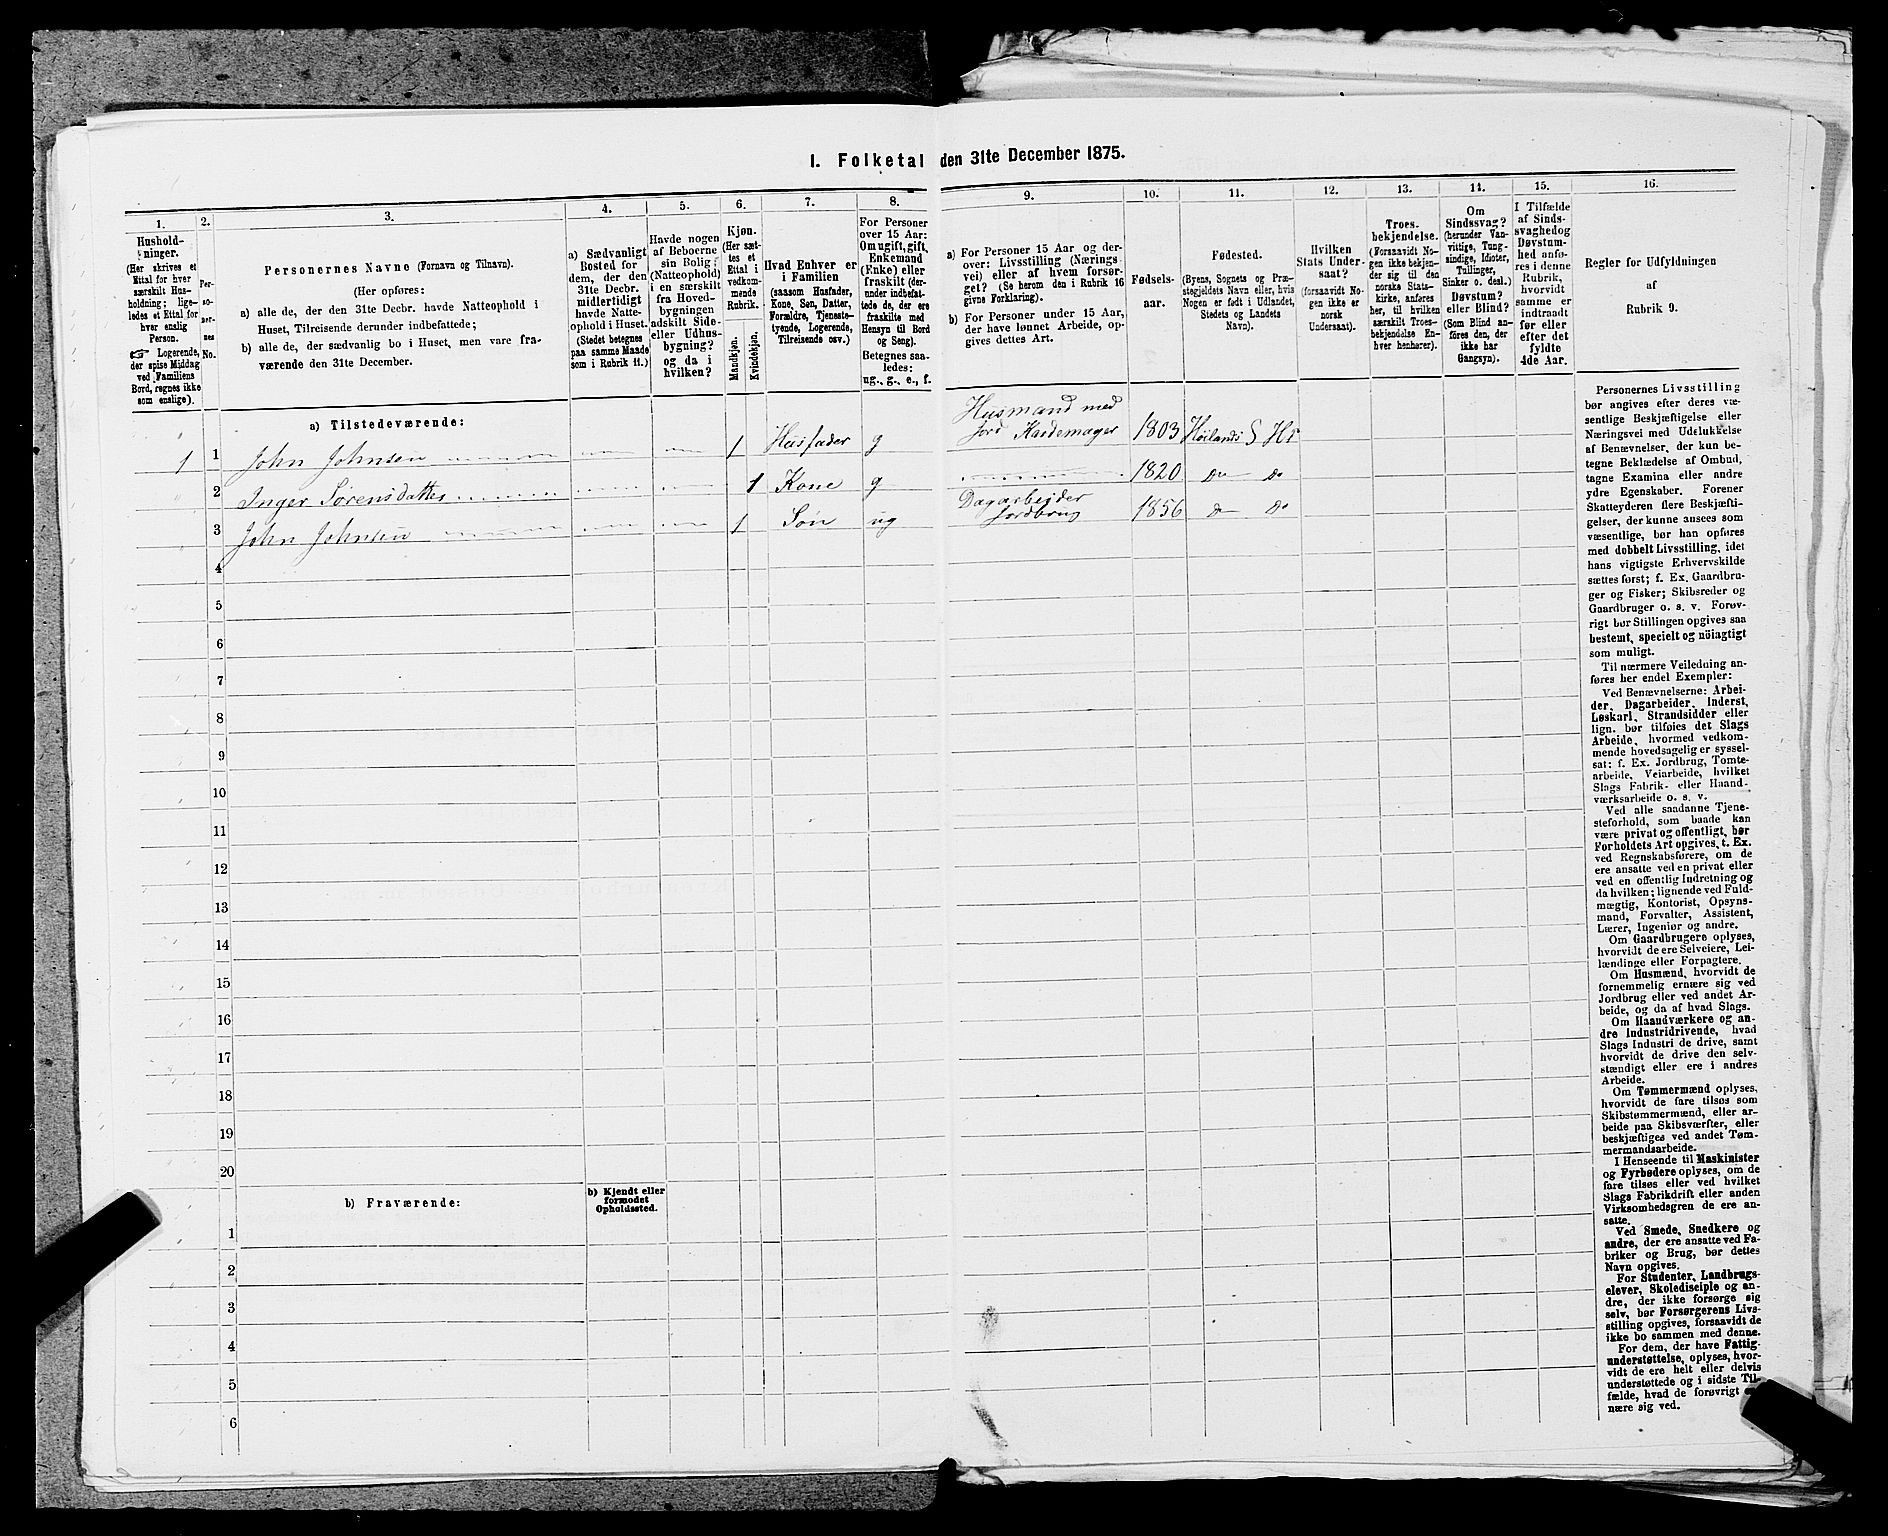 I. Folketal den 31te December 1875.
1.
Hushold-
ninger.
(Her skrives et
Ettal for hver
særskilt Hus-
holdning; lige-
ledes et Ettal for
hver enslig
Person.
☞ Logerende,
der spise Middag
ved Familiens
Bord, regnes ikke
som enslige).
2.
Per-
so-
ner-
nes
No.
3.
Personernes Navne (Fornavn og Tilnavn).
(Her opføres:
a) alle de, der den 31te Decbr. havde Natteophold i
Huset, Tilreisende derunder indbefattede;
b) alle de, der sædvanlig bo i Huset, men vare fra-
værende den 31te December.
4.
a) Sædvanligt
Bosted for
dem, der den
31te Decbr.
midlertidigt
havde Natte-
ophold i Huset.
(Stedet betegnes
paa samme Maade
som i Rubrik 11.)
5.
Havde nogen
af Beboerne
sin Bolig
(Natteophold)
i en særskilt
fra Hoved-
bygningen
adskilt Side-
eller Udhus-
bygning?
og da i
hvilken?
6.
Kjøn.
(Her sæt-
tes et
Ettal i
vedkom-
mende
Rubrik.
Mandkjøn.
Kvindekjøn.
7.
Hvad Enhver er
i Familien
(saasom Husfader,
Kone, Søn, Datter,
Forældre, Tjeneste-
tyende, Logerende,
Tilreisende osv.)
8.
For Personer
over 15 Aar:
Om ugift, gift,
Enkemand
(Enke) eller
fraskilt (der-
under indbefat-
tede de, der ere
fraskilte med
Hensyn til Bord
og Seng).
Betegnes saa-
ledes:
ug., g., e., f.
9.
a) For Personer 15 Aar og der-
over: Livsstilling (Nærings-
vei) eller af hvem forsør-
get? (Se herom den i Rubrik 16
givne Forklaring).
b) For Personer under 15 Aar,
der have lønnet Arbeide, op-
gives dettes Art.
10.
Fødsels-
aar.
11.
Fødested.
(Byens, Sognets og Præ-
stegjeldets Navn eller, hvis
Nogen er født i Udlandet,
Stedets og Landets
Navn).
12.
Hvilken
Stats Under-
saat?
(forsaavidt No-
gen ikke er
norsk
Undersaat).
13.
Troes-
bekjendelse.
(Forsaavidt No-
gen ikke bekjen-
der sig til den
norske Stats-
kirke, anføres
her, til hvilken
særskilt Troes-
bekjendelse En-
hver henhører).
14.
Om
Sindssvag?
(herunder Van-
vittige, Tung-
sindige, Idioter,
Tullinger,
Sinker o. desl.)
Døvstum?
eller Blind?
(Som Blind an-
føres den, der
ikke har
Gangsyn).
15.
I Tilfælde
af Sinds-
svaghed og
Døvstum-
hed anfø-
res i denne
Rubrik,
hvorvidt
samme er
indtraadt
før eller
efter det
fyldte
4de Aar.
16.
Regler for Udfyldningen
af
Rubrik 9.
a) Tilstedeværende:
1 1 John Johnsen 1 Husfader g Husmand med Jord Kardemager 1803 Høilands S Hr
2 Inger Sørensdatter 1 Kone g 1820 Do Do
3 John Johnsen 1 Søn ug Dagarbeider Jordbrug 1856 Do Do
4
5
6
7
8
9
10
11
12
13
14
15
16
17
18
19
20
b) Fraværende:
b) Kjendt eller
formodet
Opholdssted.
1
2
3
4
5
6
Personernes Livsstilling
bør angives efter deres væ-
sentlige Beskjæftigelse eller
Næringsvei med Udelukkelse
af Benævnelser, der kun be-
tegne Beklædelse af Ombud,
tagne Examina eller andre
ydre Egenskaber. Forener
Skatteyderen flere Beskjæfti-
gelser, der kunne ansees som
væsentlige, bør han opføres
med dobbelt Livsstilling, idet
hans vigtigste Erhvervskilde
sættes først; f. Ex. Gaardbru-
ger og Fisker; Skibsreder og
Gaardbruger o. s. v. Forøv-
rigt bør Stillingen opgives saa
bestemt, specielt og nöiagtigt
som muligt.
Til nærmere Veiledning an-
føres her endel Exempler:
Ved Benævnelserne: Arbei-
der, Dagarbeider, Inderst,
Løskarl, Strandsidder eller
lign. bør tilføies det Slags
Arbeide, hvormed vedkom-
mende hovedsagelig er syssel-
sat; f. Ex. Jordbrug, Tomte-
arbeide, Veiarbeide, hvilket
Slags Fabrik- eller Haand-
værksarbeide o. s. v.
Ved alle saadanne Tjene-
steforhold, som baade kan
være privat og offentligt, bør
Forholdets Art opgives, t. Ex.
ved Regnskabsførere, om de
ere ansatte ved en privat eller
ved en offentlig Indretning og
da hvilken; lignende ved Fuld-
mægtig, Kontorist, Opsyns-
mand, Forvalter, Assistent,
Lærer, Ingeniør og andre.
Om Gaardbrugere oplyses,
hvorvidt de ere Selveiere, Lei-
lændinge eller Forpagtere.
Om Husmænd, hvorvidt de
fornemmelig ernære sig ved
Jordbrug eller ved andet Ar-
beide, og da af hvad Slags.
Om Haandværkere og an-
dre Industridrivende, hvad
Slags Industri de drive, samt
hvorvidt de drive den selv-
stændigt eller ere i andres
Arbeide.
Om Tømmermænd oplyses,
hvorvidt de fare tilsøs som
Skibstømmermænd, eller ar-
beide paa Skibsværfter, eller
beskjæftiges ved andet Tøm-
mermandsarbeide.
I Henseende til Maskinister
og Fyrbødere oplyses, om de
fare tilsøs eller ved hvilket
Slags Fabrikdrift eller anden
Virksomhedsgren de ere an-
satte.
Ved Smede, Snedkere og
andre, der ere ansatte ved Fa-
briker og Brug, bør dettes
Navn opgives.
For Studenter, Landbrugs-
elever, Skoledisciple og an-
dre, der ikke forsørge sig
selv, bør Forsørgerens Livs-
stilling opgives, forsaavidt de
ikke bo sammen med denne.
For dem, der have Fattig-
understøttelse, oplyses, hvor-
vidt de ere helt eller delvis
understøttede og i sidste Til-
fælde, hvad de forøvrigt er-
nære sig ved.